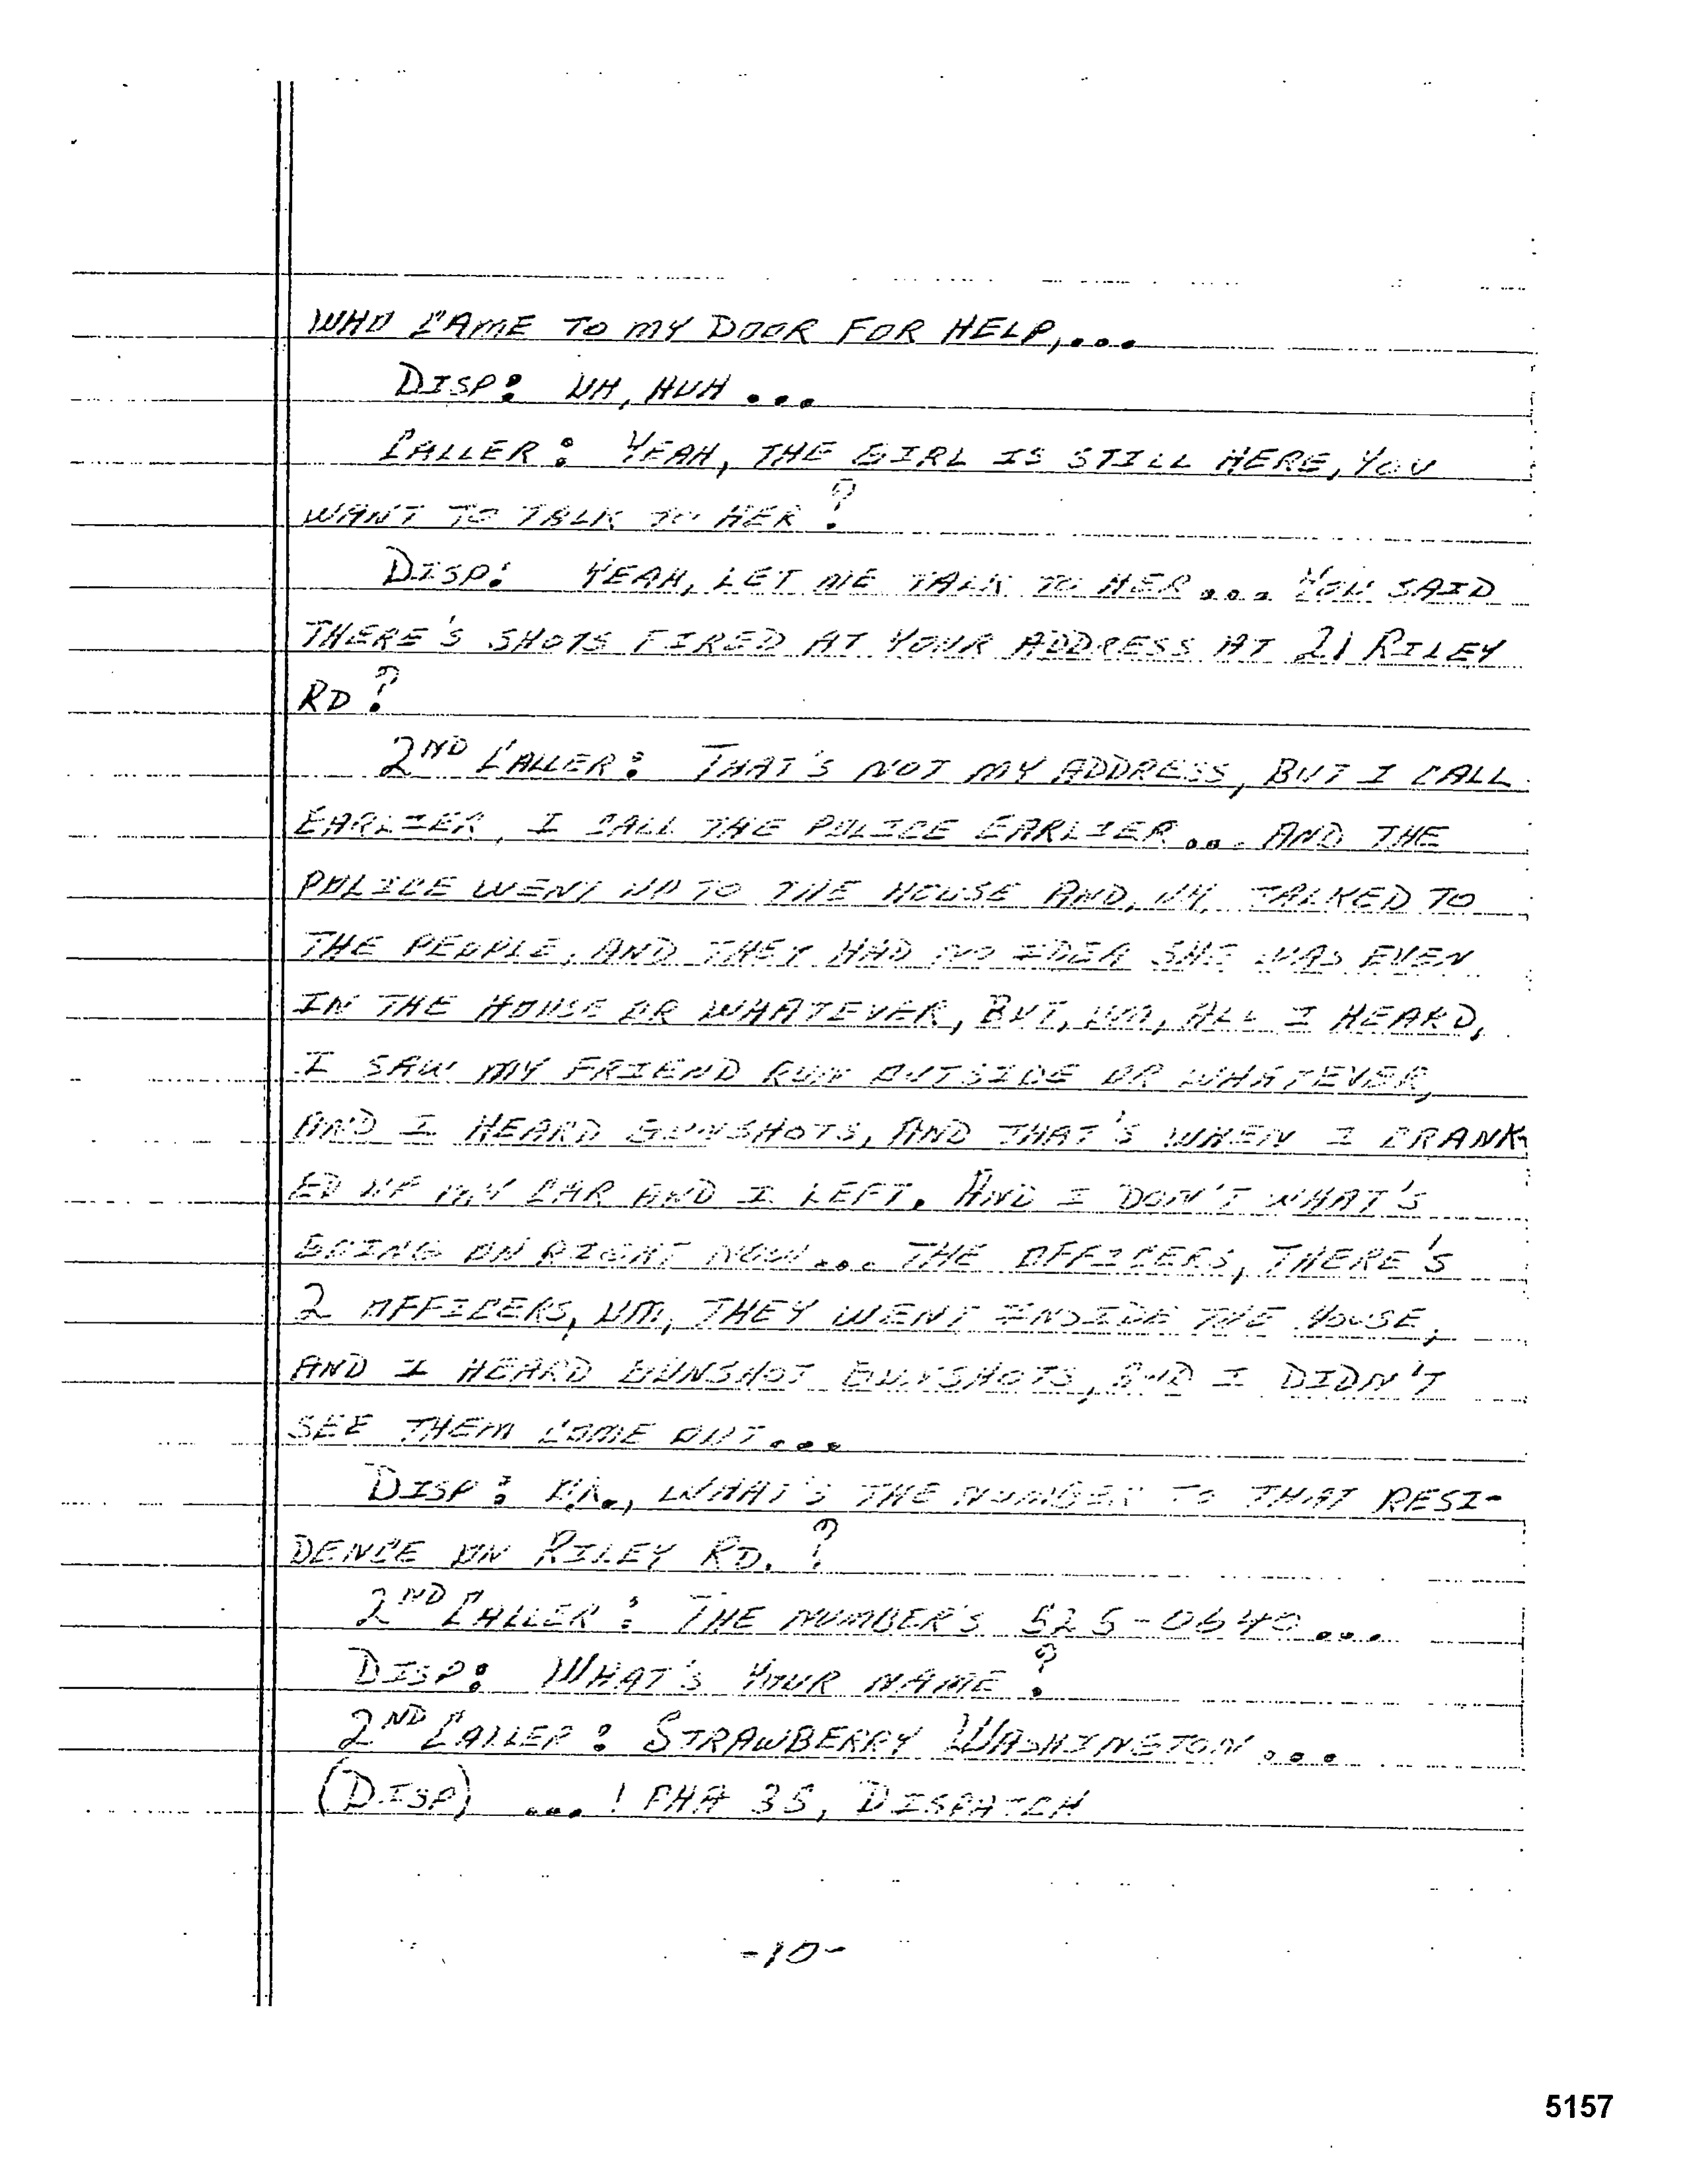 WHO CAME TO MY DOOR FOR HELP,...
DISP: UH, HUH ...
CALLER: YEAH, THE GIRL IS STILL HERE, YOU
WANT TO TALK TO HER?
DISP: YEAH, LET ME TALK TO HER... YOU SAID
THERE'S SHOTS FIRED AT YOUR ADDRESS AT 21 RILEY
RD?
2ND CALLER: THAT'S NOT MY ADDRESS, BUT I CALL
EARLIER, I CALL THE POLICE EARLIER... AND THE
POLICE WENT UP TO THE HOUSE AND, UH, TALKED TO
THE PEOPLE, AND THEY HAD NO IDEA SHE WAS EVEN
IN THE HOUSE OR WHATEVER, BUT, UM, ALL I HEARD,
I SAW MY FRIEND RUN OUTSIDE OR WHATEVER,
AND I HEARD GUNSHOTS, AND THAT'S WHEN I CRANK-
ED UP MY CAR AND I LEFT. AND I DON'T WHAT'S
GOING ON RIGHT NOW... THE OFFICERS, THERE'S
2 OFFICERS, UM, THEY WENT INSIDE THE HOUSE,
AND I HEARD GUNSHOT GUNSHOTS, AND I DIDN'T
SEE THEM COME OUT...
DISP: OK., WHAT'S THE NUMBER TO THAT RESI-
DENCE ON RILEY RD.?
2ND CALLER: THE NUMBER'S 525-0640...
DISP: WHAT'S YOUR NAME?
2ND CALLER: STRAWBERRY WASHINGTON...
(DISP) ... 35, DISPATCH
-10-
5157